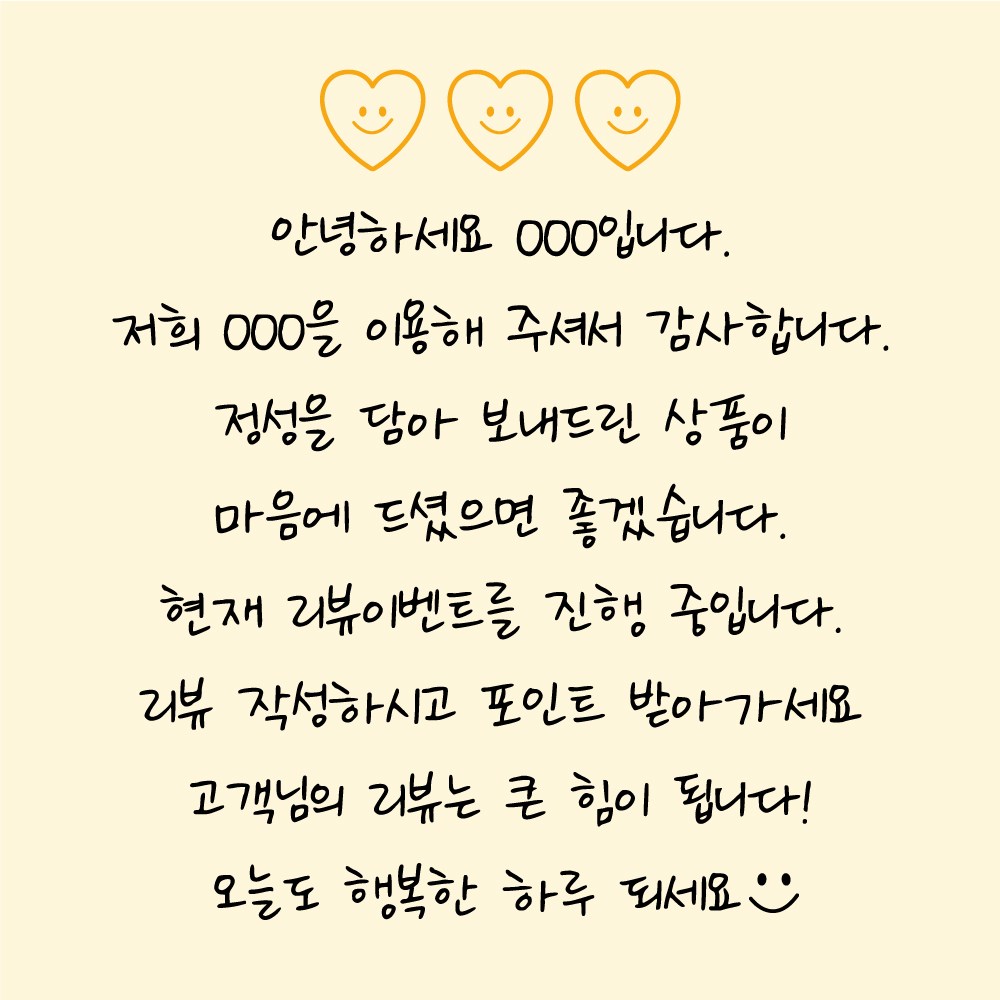 안녕하세요 OOO입니다.
저희 OOO을 이용해 주셔서 감사합니다.
정성을 담아 보내드린 상품이
마음에 드셨으면 좋겠습니다.
현재 리뷰이벤트를 진행 중입니다.
리뷰 작성하시고 포인트 받아가세요
고객님의 리뷰는 큰 힘이 됩니다!
오늘도 행복한 하루 되세요